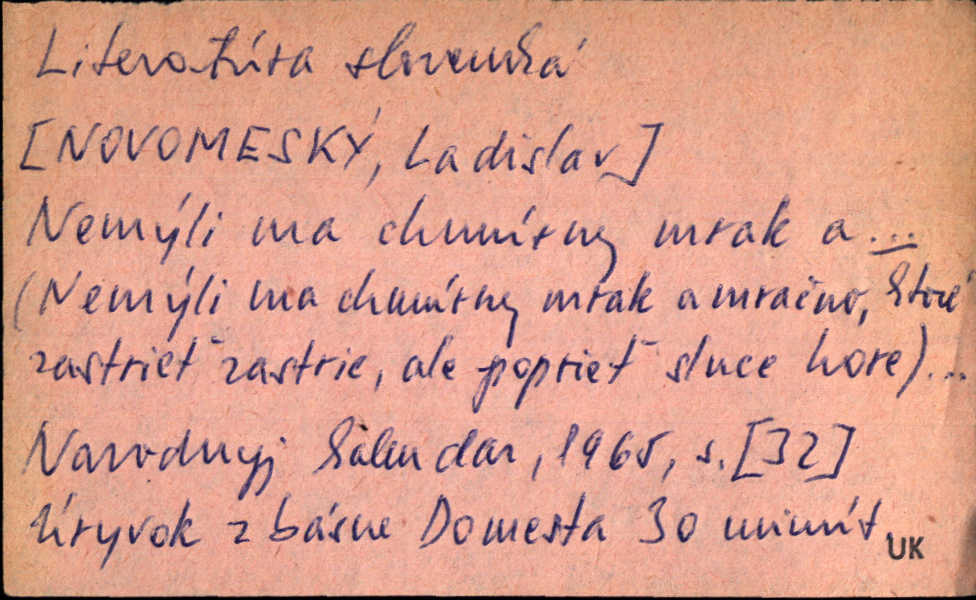 Literatúra slovenská
[NOVOMESKÝ, Ladislav]
Nemýli ma chmúrny mrak a...
(Nemýli ma chmúrny mrak a mračno, ktoré
zastrieť zastrie, ale poprieť slnce hore)...
Narodnyj kalendar, 1965, s. [32]
Úryvok z básne Do mesta 30 minút.
UK